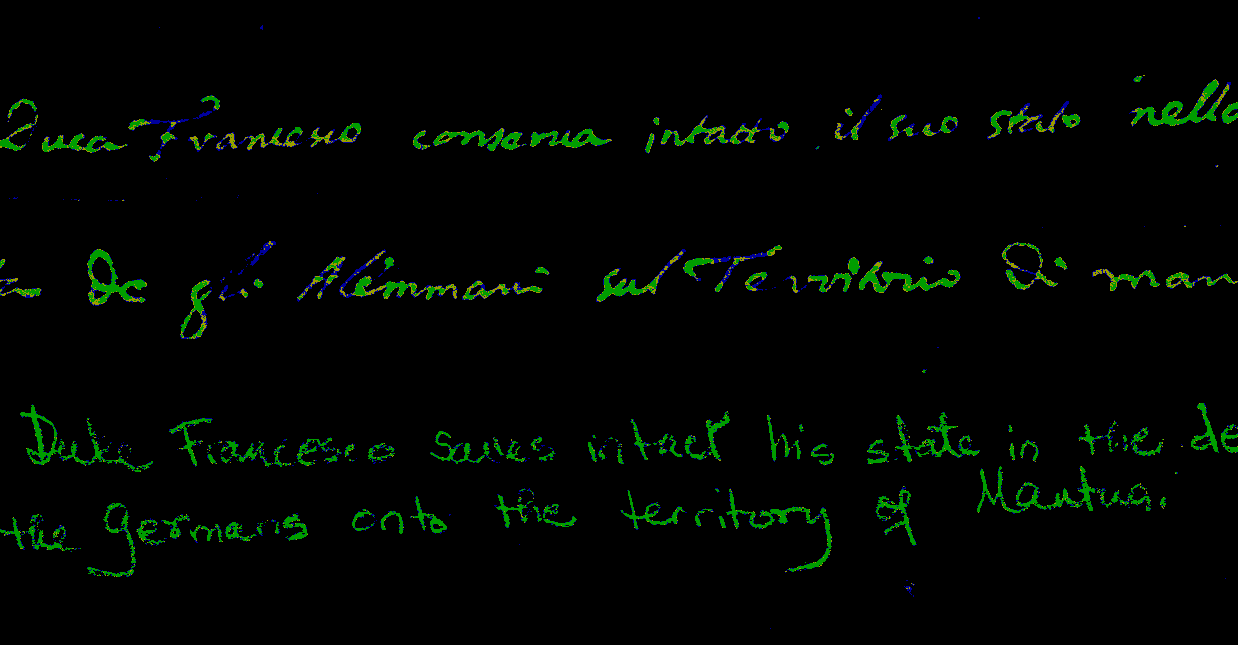 Duca Francesco conserva intatto il suo stato nella
De gli Alemmani sul Territorio Di man
Duke Francesco saves intact his state in the de
the Germans onto the territory of Mantua.